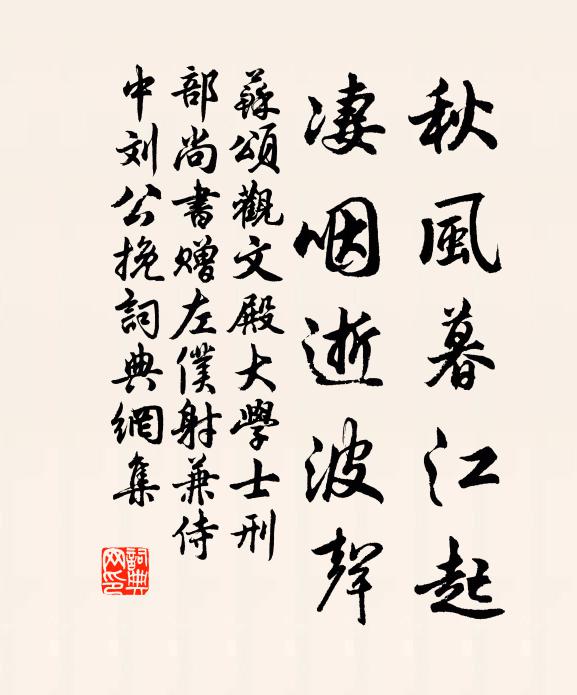 秋風暮江起
凄咽逝波聲
蘇頌觀文殿大學士刑
部尚書贈左僕射兼侍
中刘公挽詞典網集
詞典
网印